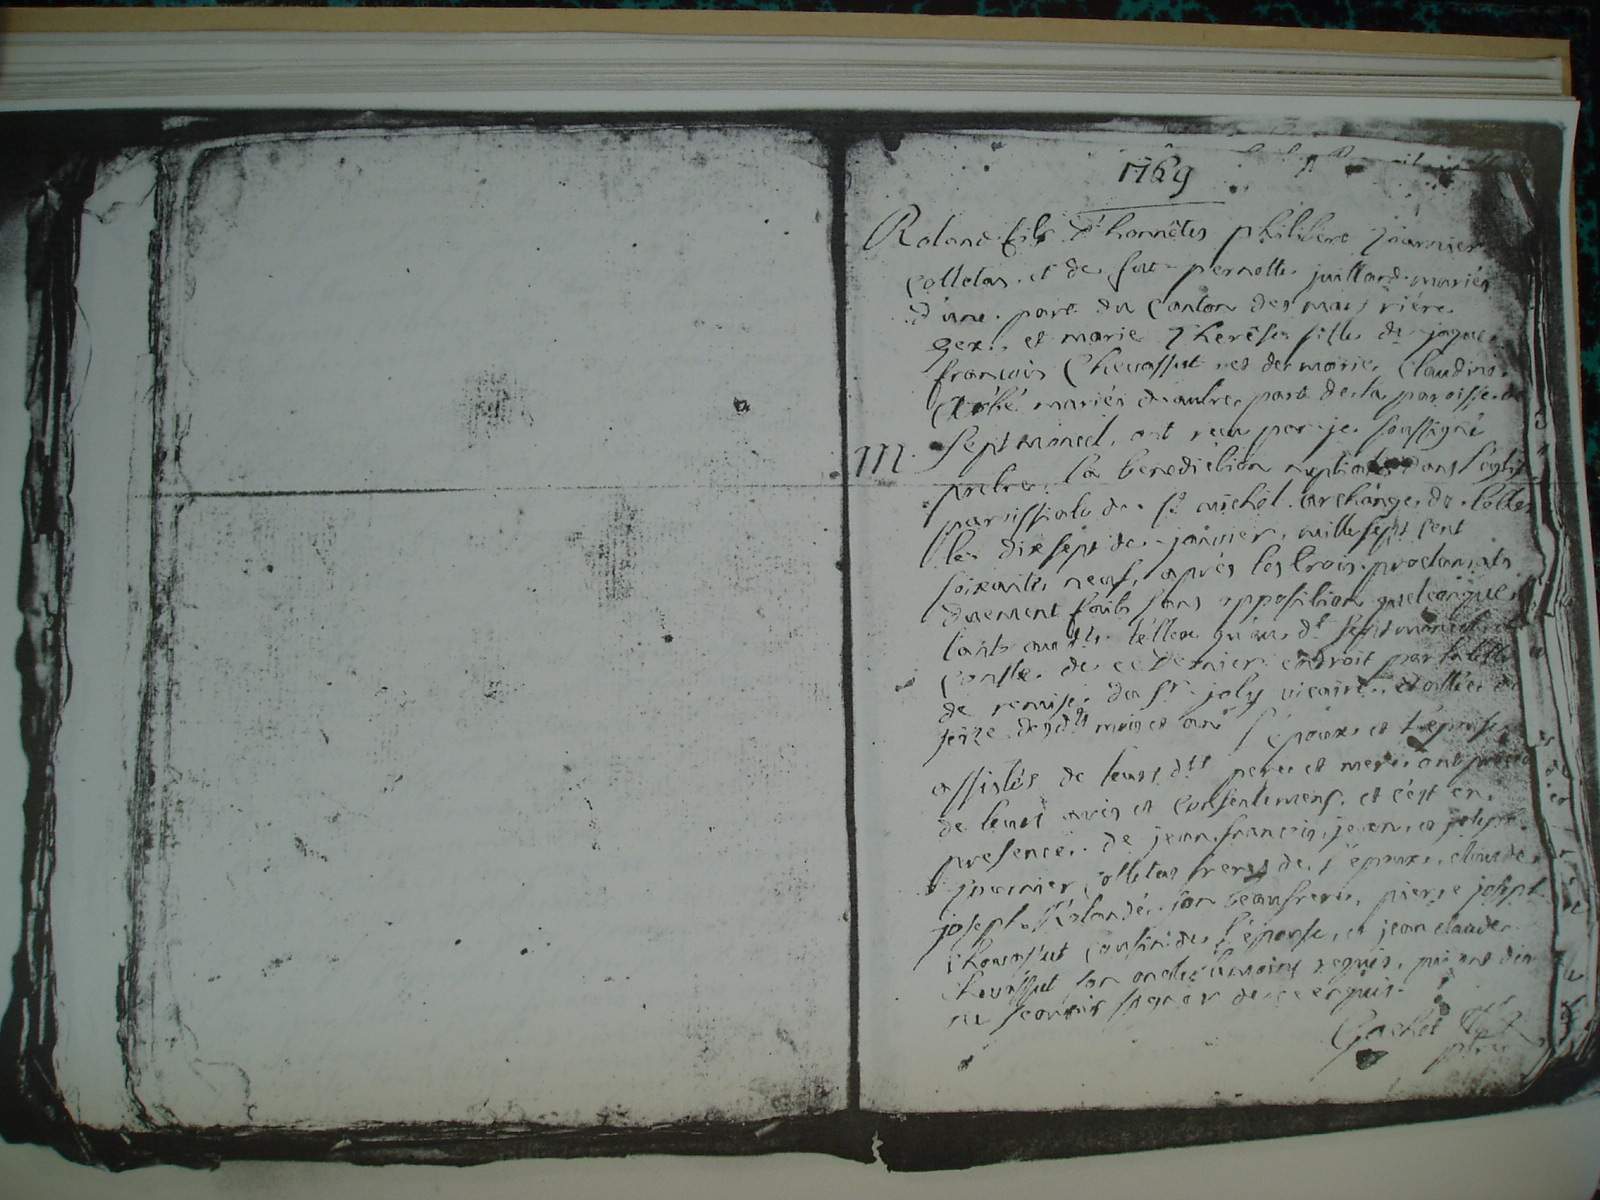 1769
Roland fils d'honnêtes philibere journier
Colletas et de fut pernette juillard mariés
d'une part du Canton des mars riére
Gex. et marie Therêse fille de jaque
francois Chevassut et de marie Claudine
mariés d'autre part de la paroisse de
M. Septmoncel, ont reçu par je soussigné
prêtre la benediction nuptiale dans l'eglise
paroissiale de st michel archange de lellex
le dixsept de janvier, mille sept cent
soixante neuf, après les trois proclamats
duement faits sans opposition quelconque
tants audit lellex qu'au dt septmoncel
Conste de ce dernier endroit par la lettre
de remise du Sr joly vicaire
seize desdts mois et an L'époux et l'épouse
assistés de leurs dits pere et mere ont
de leurs avis et Consentement. et c'est en
presence. de jean françois, jean, et joseph
journier Colletas freres de l'époux. claude
joseph son beaufrere, pierre joseph
Chevassut cousin de l'épouse, et jean claude
Chevassut son oncle témoins requis, qui ont
ne scavoir signer de ce enquis.
Gachet
ptre